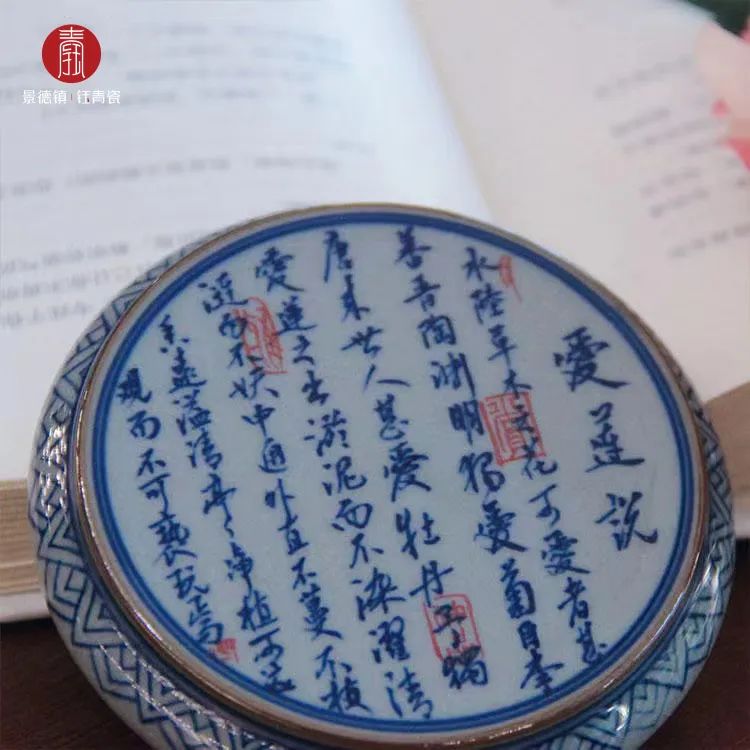 景德镇 | 钰青瓷
愛蓮说
水陸草木之花可愛者甚
蕃晋陶渊明獨愛菊自李
唐来世人甚愛牡丹予獨
愛蓮之出淤泥而不染濯清
涟而不妖中通外直不蔓不枝
香遠溢清亭々净植可远
观而不可亵玩焉